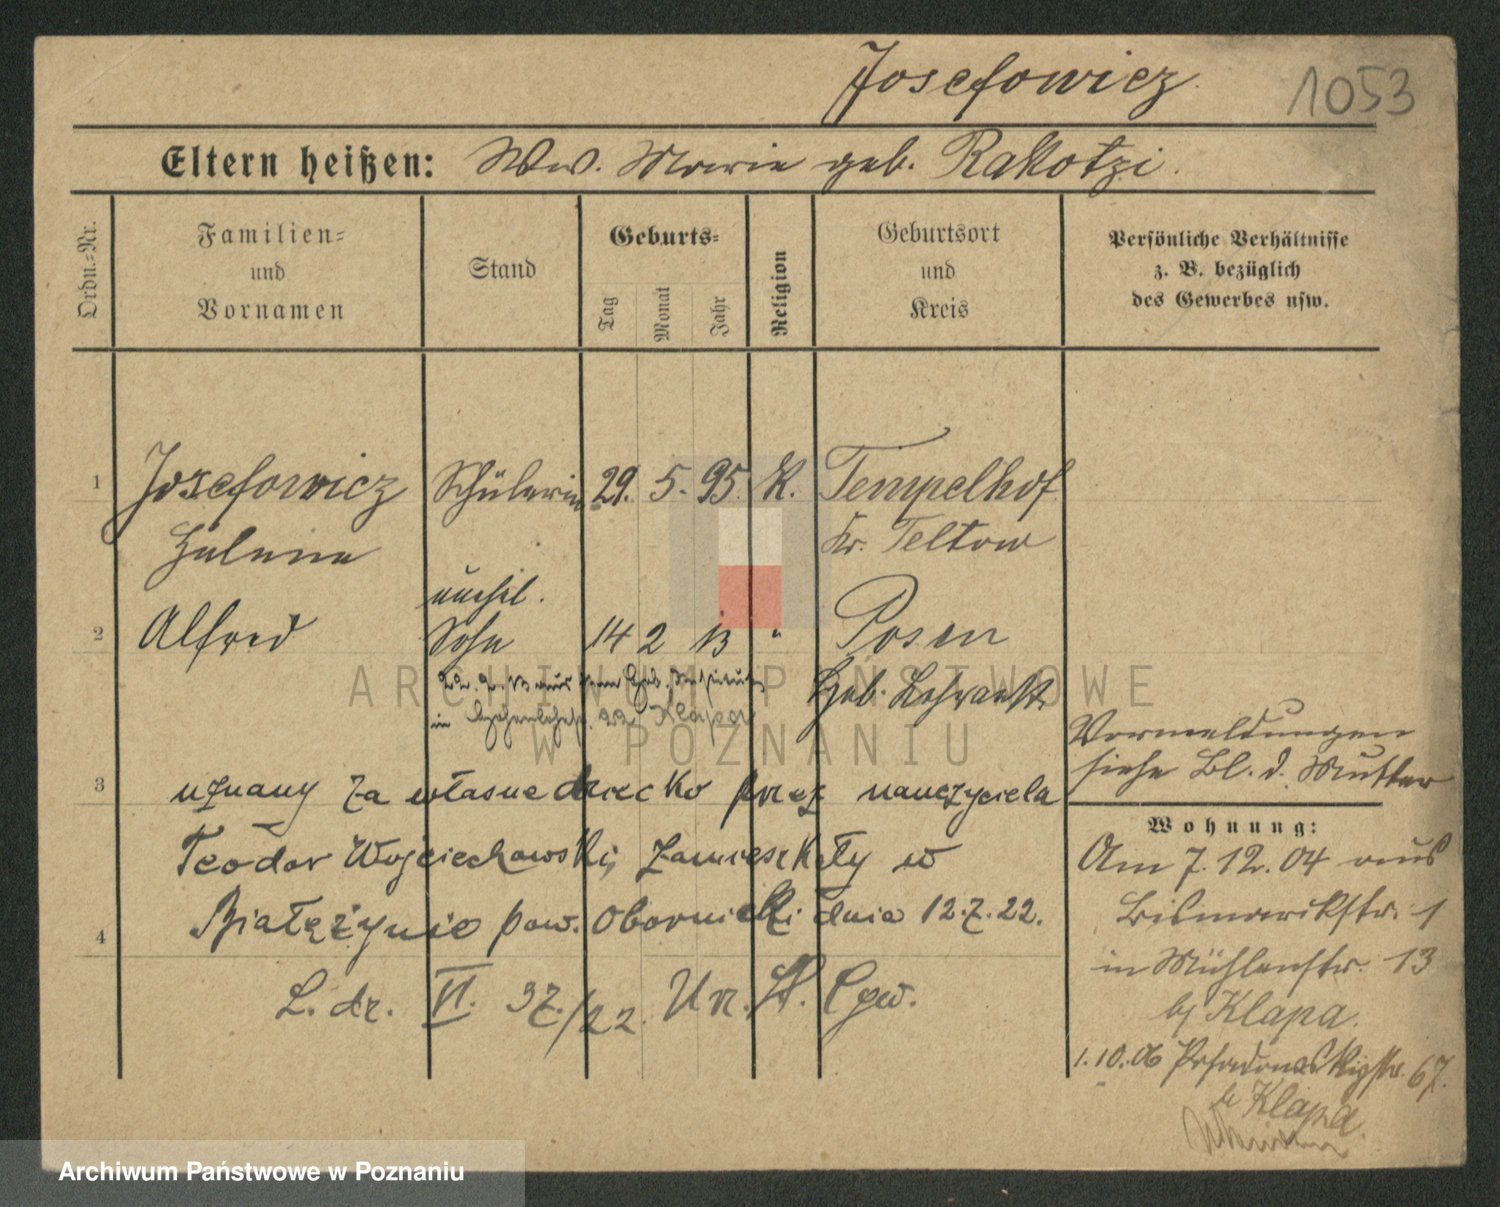 Josefowicz
1053
Eltern heißen: Ww. Marie geb. Rakotzi.
Ordn.-Nr.
Familien- und Vornamen
Stand
Geburts-
Tag
Monat
Jahr
Religion
Geburtsort und Kreis
Persönliche Verhältnisse z. B. bezüglich des Gewerbes usw.
1 Josefowicz Schülerin 29. 5. 95. K. Tempelhof
Helene Kr. Teltow
unehel.
2 Alfred Sohn 14 2 13 " Posen
aus dem Heb. Institut Heb. Lehranst.
in 22 Klapa
Vormeldungen
siehe Bl. d. Mutter
3 uznany za własne dziecko przez nauczyciela
Teodor Wojciechowski, zamieszkały w
4 Białężynie pow. Obornicki dnia 12.7.22.
L. dz. VI. 37./22. Urz. St.
Wohnung:
Am 7.12.04 aus
Bismarckstr. 1
in Mühlenstr. 13
bj Klapa.
1.10.06 Posadowskystr. 67.
b Klapa
ARCHIWUM PAŃSTWOWE
W POZNANIU
Archiwum Państwowe w Poznaniu